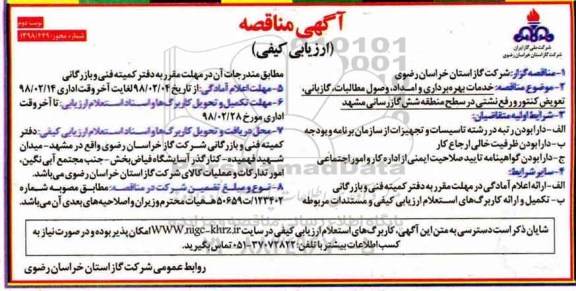 آگهی مناقصه
(ارزیابی کیفی)
نوبت دوم
شماره مجوز: ۱۳۹۸/۴۴۹
شرکت ملی گاز ایران
شرکت گاز استان خراسان رضوی
۱- مناقصه گزار: شرکت گاز استان خراسان رضوی
۲- موضوع مناقصه: خدمات بهره برداری و امداد، وصول مطالبات، گازبانی،
تعویض کنتور و رفع نشتی در سطح منطقه شش گازرسانی مشهد
۳- شرایط اولیه متقاضیان:
الف- دارا بودن رتبه در رشته تاسیسات و تجهیزات از سازمان برنامه و بودجه
ب- دارا بودن ظرفیت خالی ارجاع کار
ج- دارا بودن گواهینامه تایید صلاحیت ایمنی از اداره کار و امور اجتماعی
۴- سایر شرایط:
الف- ارائه اعلام آمادگی در مهلت مقرر به دفتر کمیته فنی و بازرگانی
ب- تکمیل و ارائه کاربرگ های استعلام ارزیابی کیفی و مستندات مربوطه
مطابق مندرجات آن در مهلت مقرر به دفتر کمیته فنی و بازرگانی
۵- مهلت اعلام آمادگی: از تاریخ ۹۸/۰۲/۰۴ لغایت آخر وقت اداری ۹۸/۰۲/۱۴
۶- مهلت تکمیل و تحویل کاربرگ ها و اسناد استعلام ارزیابی: تا آخر وقت
اداری مورخ ۹۸/۰۲/۲۸
۷- محل دریافت و تحویل کاربرگ ها و اسناد استعلام ارزیابی کیفی: دفتر
کمیته فنی و بازرگانی شرکت گاز استان خراسان رضوی واقع در مشهد- میدان
شهید فهمیده- کنار گذر آسایشگاه فیاض بخش- جنب مجتمع آبی نگین،
امور تدارکات و عملیات کالای شرکت گاز استان خراسان رضوی می باشد.
۸- نوع و مبلغ تضمین شرکت در مناقصه: مطابق مصوبه شماره
۱۲۳۴۰۲/ت۵۰۶۵۹ه هیات محترم وزیران و اصلاحیه های بعدی آن می باشد.
شایان ذکر است دسترسی به متن این آگهی، کاربرگ های استعلام ارزیابی کیفی در سایت www.nigc-khrz.ir امکان پذیر بوده و در صورت نیاز به
کسب اطلاعات بیشتر با تلفن ۳۷۰۷۲۸۲۲-۰۵۱ تماس بگیرید.
روابط عمومی شرکت گاز استان خراسان رضوی